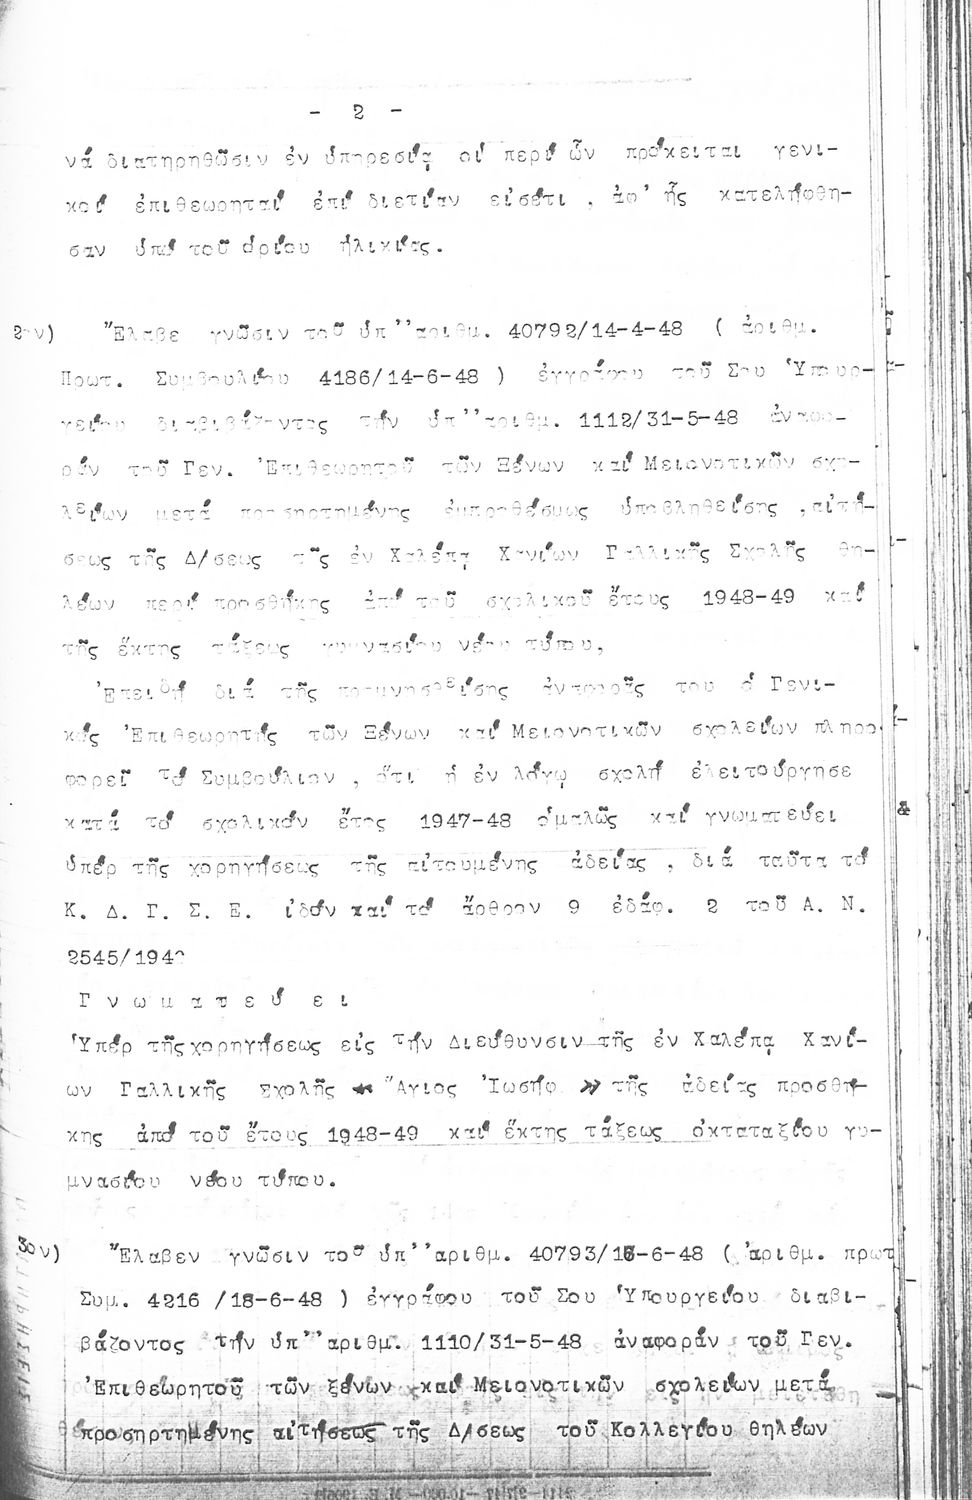 - 2 -
νά διατηρηθῶσιν ἐν ὑπηρεσίᾳ οἱ περί ὧν πρόκειται γενι-
κοί ἐπιθεωρηταί ἐπί διετίαν εἰσέτι , ἀφ' ἧς κατελήφθη-
σαν ὑπό τοῦ ὁρίου ἡλικίας.
2ον) Ἔλαβε γνῶσιν τοῦ ὑπ''αριθμ. 40792/14-4-48 ( ἀριθμ.
Πρωτ. Συμβουλίου 4186/14-6-48 ) ἐγγράφου τοῦ Σου Ὑπουρ-
γείου διαβιβάζοντος τήν ὑπ''αριθμ. 1112/31-5-48 ἀναφο-
ράν τοῦ Γεν. Ἐπιθεωρητοῦ τῶν Ξένων καί Μειονοτικῶν σχο-
λείων μετά προσηρτημένης ἐμπροθέσμως ὑποβληθείσης ,αἰτή-
σεως τῆς Δ/σεως τῆς ἐν Χαλέπᾳ Χανίων Γαλλικῆς Σχολῆς θη-
λέων περί προσθήκης ἀπό τοῦ σχολικοῦ ἔτους 1948-49 καί
τῆς ἕκτης τάξεως γυμνασίου νέου τύπου,
Ἐπειδή διά τῆς προμνησθείσης ἀναφορᾶς του ὁ Γενι-
κός Ἐπιθεωρητής τῶν Ξένων καί Μειονοτικῶν σχολείων πληρο-
φορεῖ τό Συμβούλιον , ὅτι ἡ ἐν λόγῳ σχολή ἐλειτούργησε
κατά τό σχολικόν ἔτος 1947-48 ὁμαλῶς καί γνωματεύει
ὑπέρ τῆς χορηγήσεως τῆς αἰτουμένης ἀδείας , διά ταῦτα τό
Κ. Δ. Γ. Σ. Ε. ἰδόν καί τό ἄρθρον 9 ἐδάφ. 2 τοῦ Α. Ν.
2545/194
Γ ν ω μ α τ ε ύ ε ι
Ὑπέρ τῆςχορηγήσεως εἰς τήν Διεύθυνσιν τῆς ἐν Χαλέπᾳ Χανί-
ων Γαλλικῆς Σχολῆς « Ἅγιος Ἰωσήφ » τῆς ἀδείας προσθή-
κης ἀπό τοῦ ἔτους 1948-49 καί ἕκτης τάξεως ὀκταταξίου γυ-
μνασίου νέου τύπου.
3ον) Ἔλαβεν γνῶσιν τοῦ ὑπ''αριθμ. 40793/18-6-48 ( ἀριθμ. πρωτ
Συμ. 4216 /18-6-48 ) ἐγγράφου τοῦ Σου Ὑπουργείου διαβι-
βάζοντος τήν ὑπ''αριθμ. 1110/31-5-48 ἀναφοράν τοῦ Γεν.
Ἐπιθεωρητοῦ τῶν ξένων καί Μειονοτικῶν σχολείων μετά
προσηρτημένης αἰτήσεως τῆς Δ/σεως τοῦ Κολλεγίου θηλέων